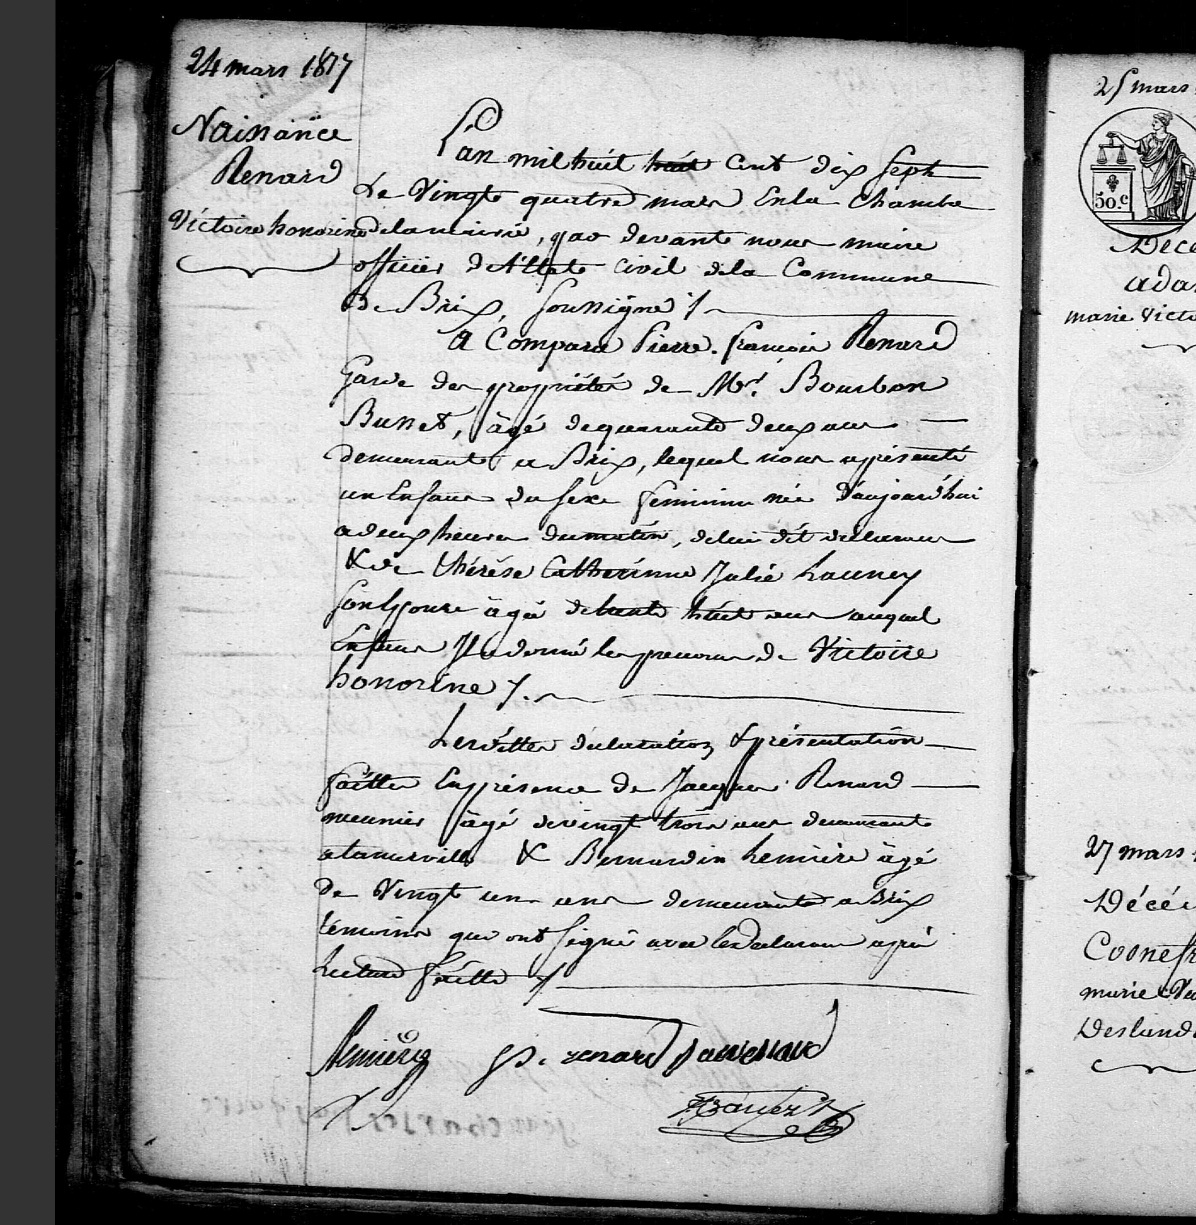 24 mars 1817
Naissance
Renard
Victoire honorine
L'an mil huit huit cent dix sept
Le Vingt quatre mars En la Chambre
de la mairie, par devant nous maire
officier de l'Etat Civil de la Commune
De Brix, soussigné /.
A Comparu Pierre françois Renard
Garde des propriétés de Mr. Bourbon
Busset, âgé de quarante deux ans
demeurant a Brix, lequel nous a présenté
un Enfant du sexe feminin née d'aujourd'hui
a deux heures du matin, de lui dit déclarant
& de thérèse Catherinne Julie Launey
son Epouse âgé de trente huit ans auquel
Enfant Il a donné les prenoms de Victoire
honorine /.
Lesdittes declaration & présentation
faittes En présence de Jacques Renard
meunier âgé de vingt trois ans demeurant
a tamerville & Bernardin Lemière âgé
De Vingt un ans demeurant a Brix
témoins qui ont signé avec le declarant après
Lecture faitte /.
Lemière p. renard
25 mars
50.c
Décè
ada
marie victo
27 mars
Décé
marie
Desland